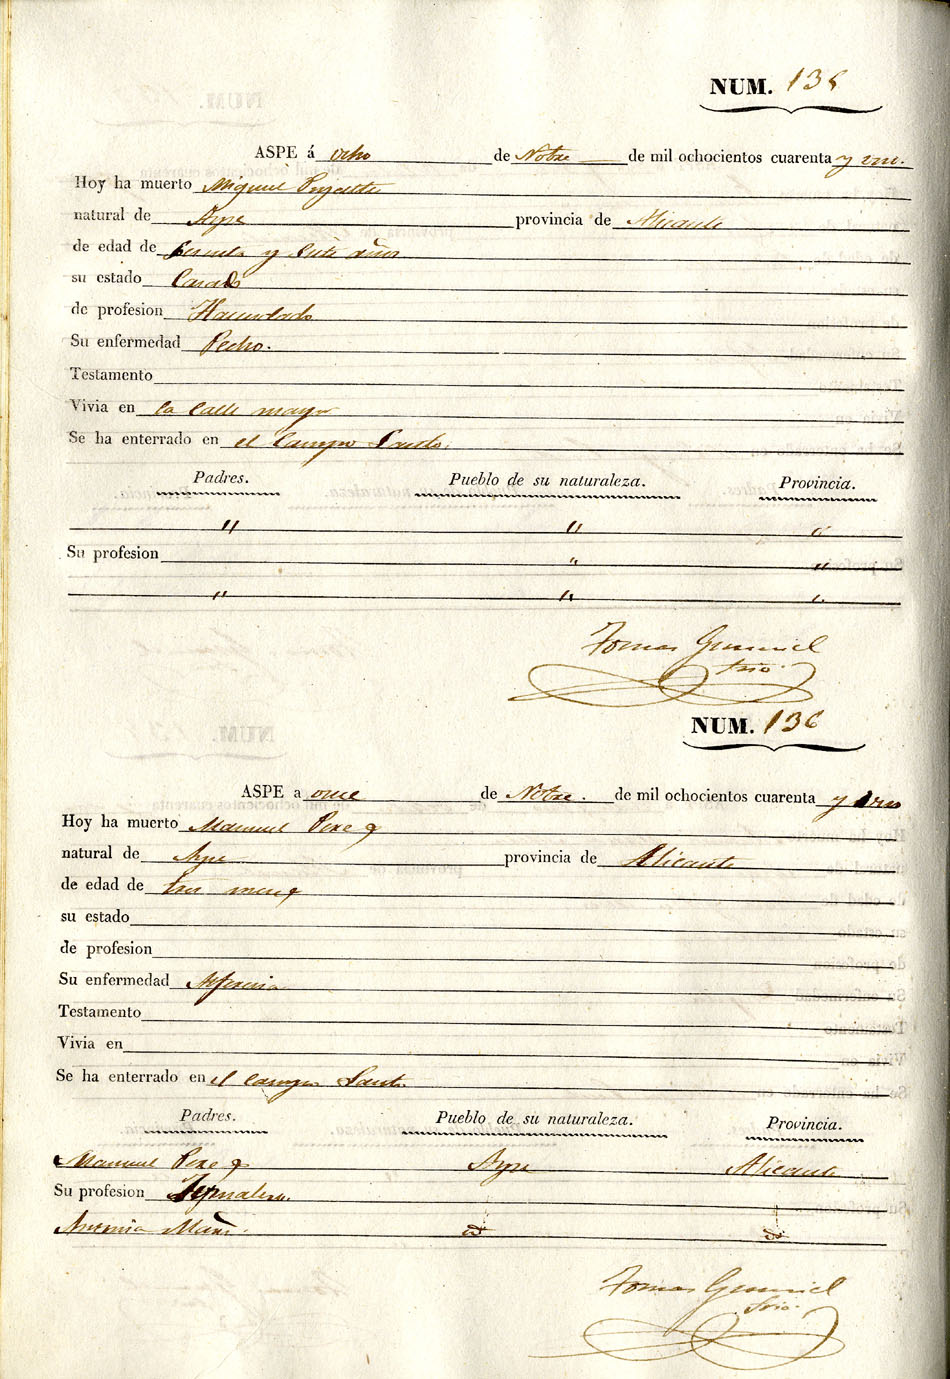 NUM. 135
ASPE á ocho de Nobre de mil ochocientos cuarenta y uno.
Hoy ha muerto Miguel Pujalte
natural de Aspe provincia de Alicante
de edad de sesenta y siete años
su estado Casado
de profesion Hacendado
Su enfermedad Pecho.
Testamento
Vivia en la calle mayor
Se ha enterrado en el Campo Santo.
Padres. Pueblo de su naturaleza. Provincia.
" " "
Su profesion " "
" " "
Tomas
Srio.
NUM. 136
ASPE a once de Nobre. de mil ochocientos cuarenta y uno
Hoy ha muerto Manuel Perez
natural de Aspe provincia de Alicante
de edad de tres meses
su estado
de profesion
Su enfermedad Alferecia
Testamento
Vivia en
Se ha enterrado en el Campo Santo
Padres. Pueblo de su naturaleza. Provincia.
Manuel Perez Aspe Alicante
Su profesion Jornalero.
Antonia id id
Tomas
Srio.